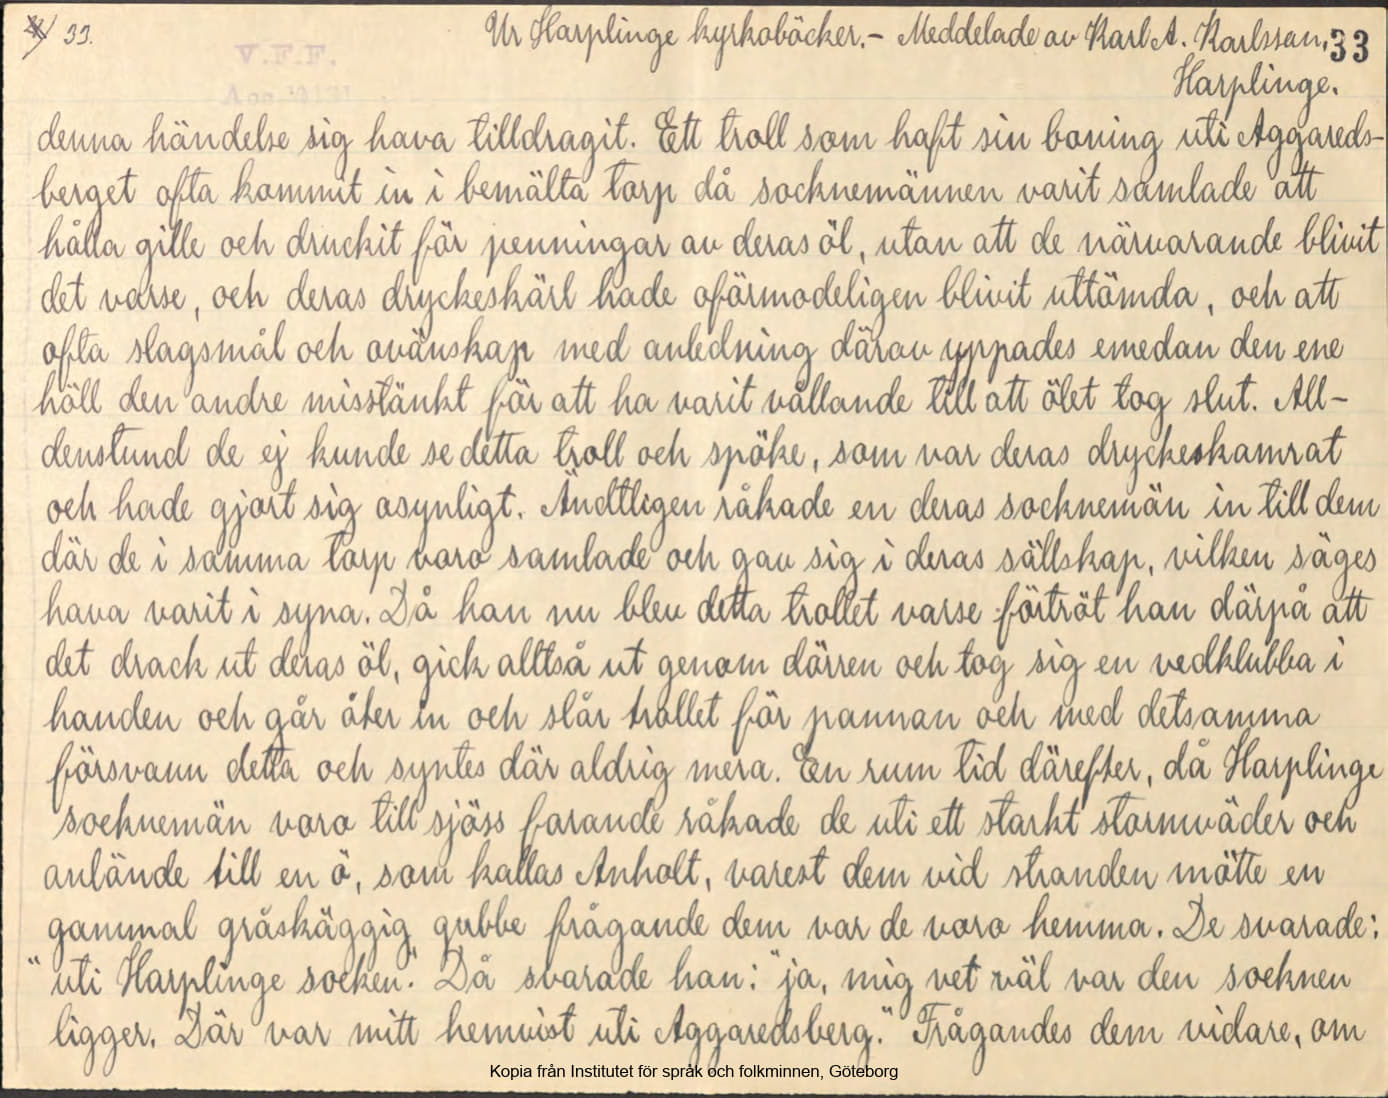 33.
Ur Harplinge kyrkoböcker. - Meddelade av Karl A. Karlsson, 33
Harplinge.
V.F.F.
denna händelse sig hava tilldragit. Ett troll som haft sin boning uti Aggareds-
berget ofta kommit in i bemälta torp då socknemännen varit samlade att
hålla gille och druckit för penningar av deras öl, utan att de närvarande blivit
det varse, och deras dryckeskärl hade oförmodeligen blivit uttömda, och att
ofta slagsmål och ovänskap med anledning därav yppades emedan den ene
höll den andre misstänkt för att ha varit vållande till att ölet tog slut. All-
denstund de ej kunde se detta troll och spöke, som var deras dryckeskamrat
och hade gjort sig osynligt. Ändtligen råkade en deras socknemän in till dem
där de i samma torp voro samlade och gav sig i deras sällskap, vilken säges
hava varit i syna. Då han nu blev detta trollet varse förtröt han därpå att
det drack ut deras öl, gick alltså ut genom dörren och tog sig en vedklubba i
handen och går åter in och slår trollet för pannan och med detsamma
försvann detta och syntes där aldrig mera. En rum tid därefter, då Harplinge
socknemän voro till sjöss farande råkade de uti ett starkt stormväder och
anlände till en ö, som kallas Anholt, varest dem vid stranden mötte en
gammal gråskäggig gubbe frågande dem var de voro hemma. De svarade:
"uti Harplinge socken." Då svarade han: "ja, mig vet väl var den socknen
ligger. Där var mitt hemvist uti Aggaredsberg." Frågandes dem vidare, om
Kopia från Institutet för språk och folkminnen, Göteborg